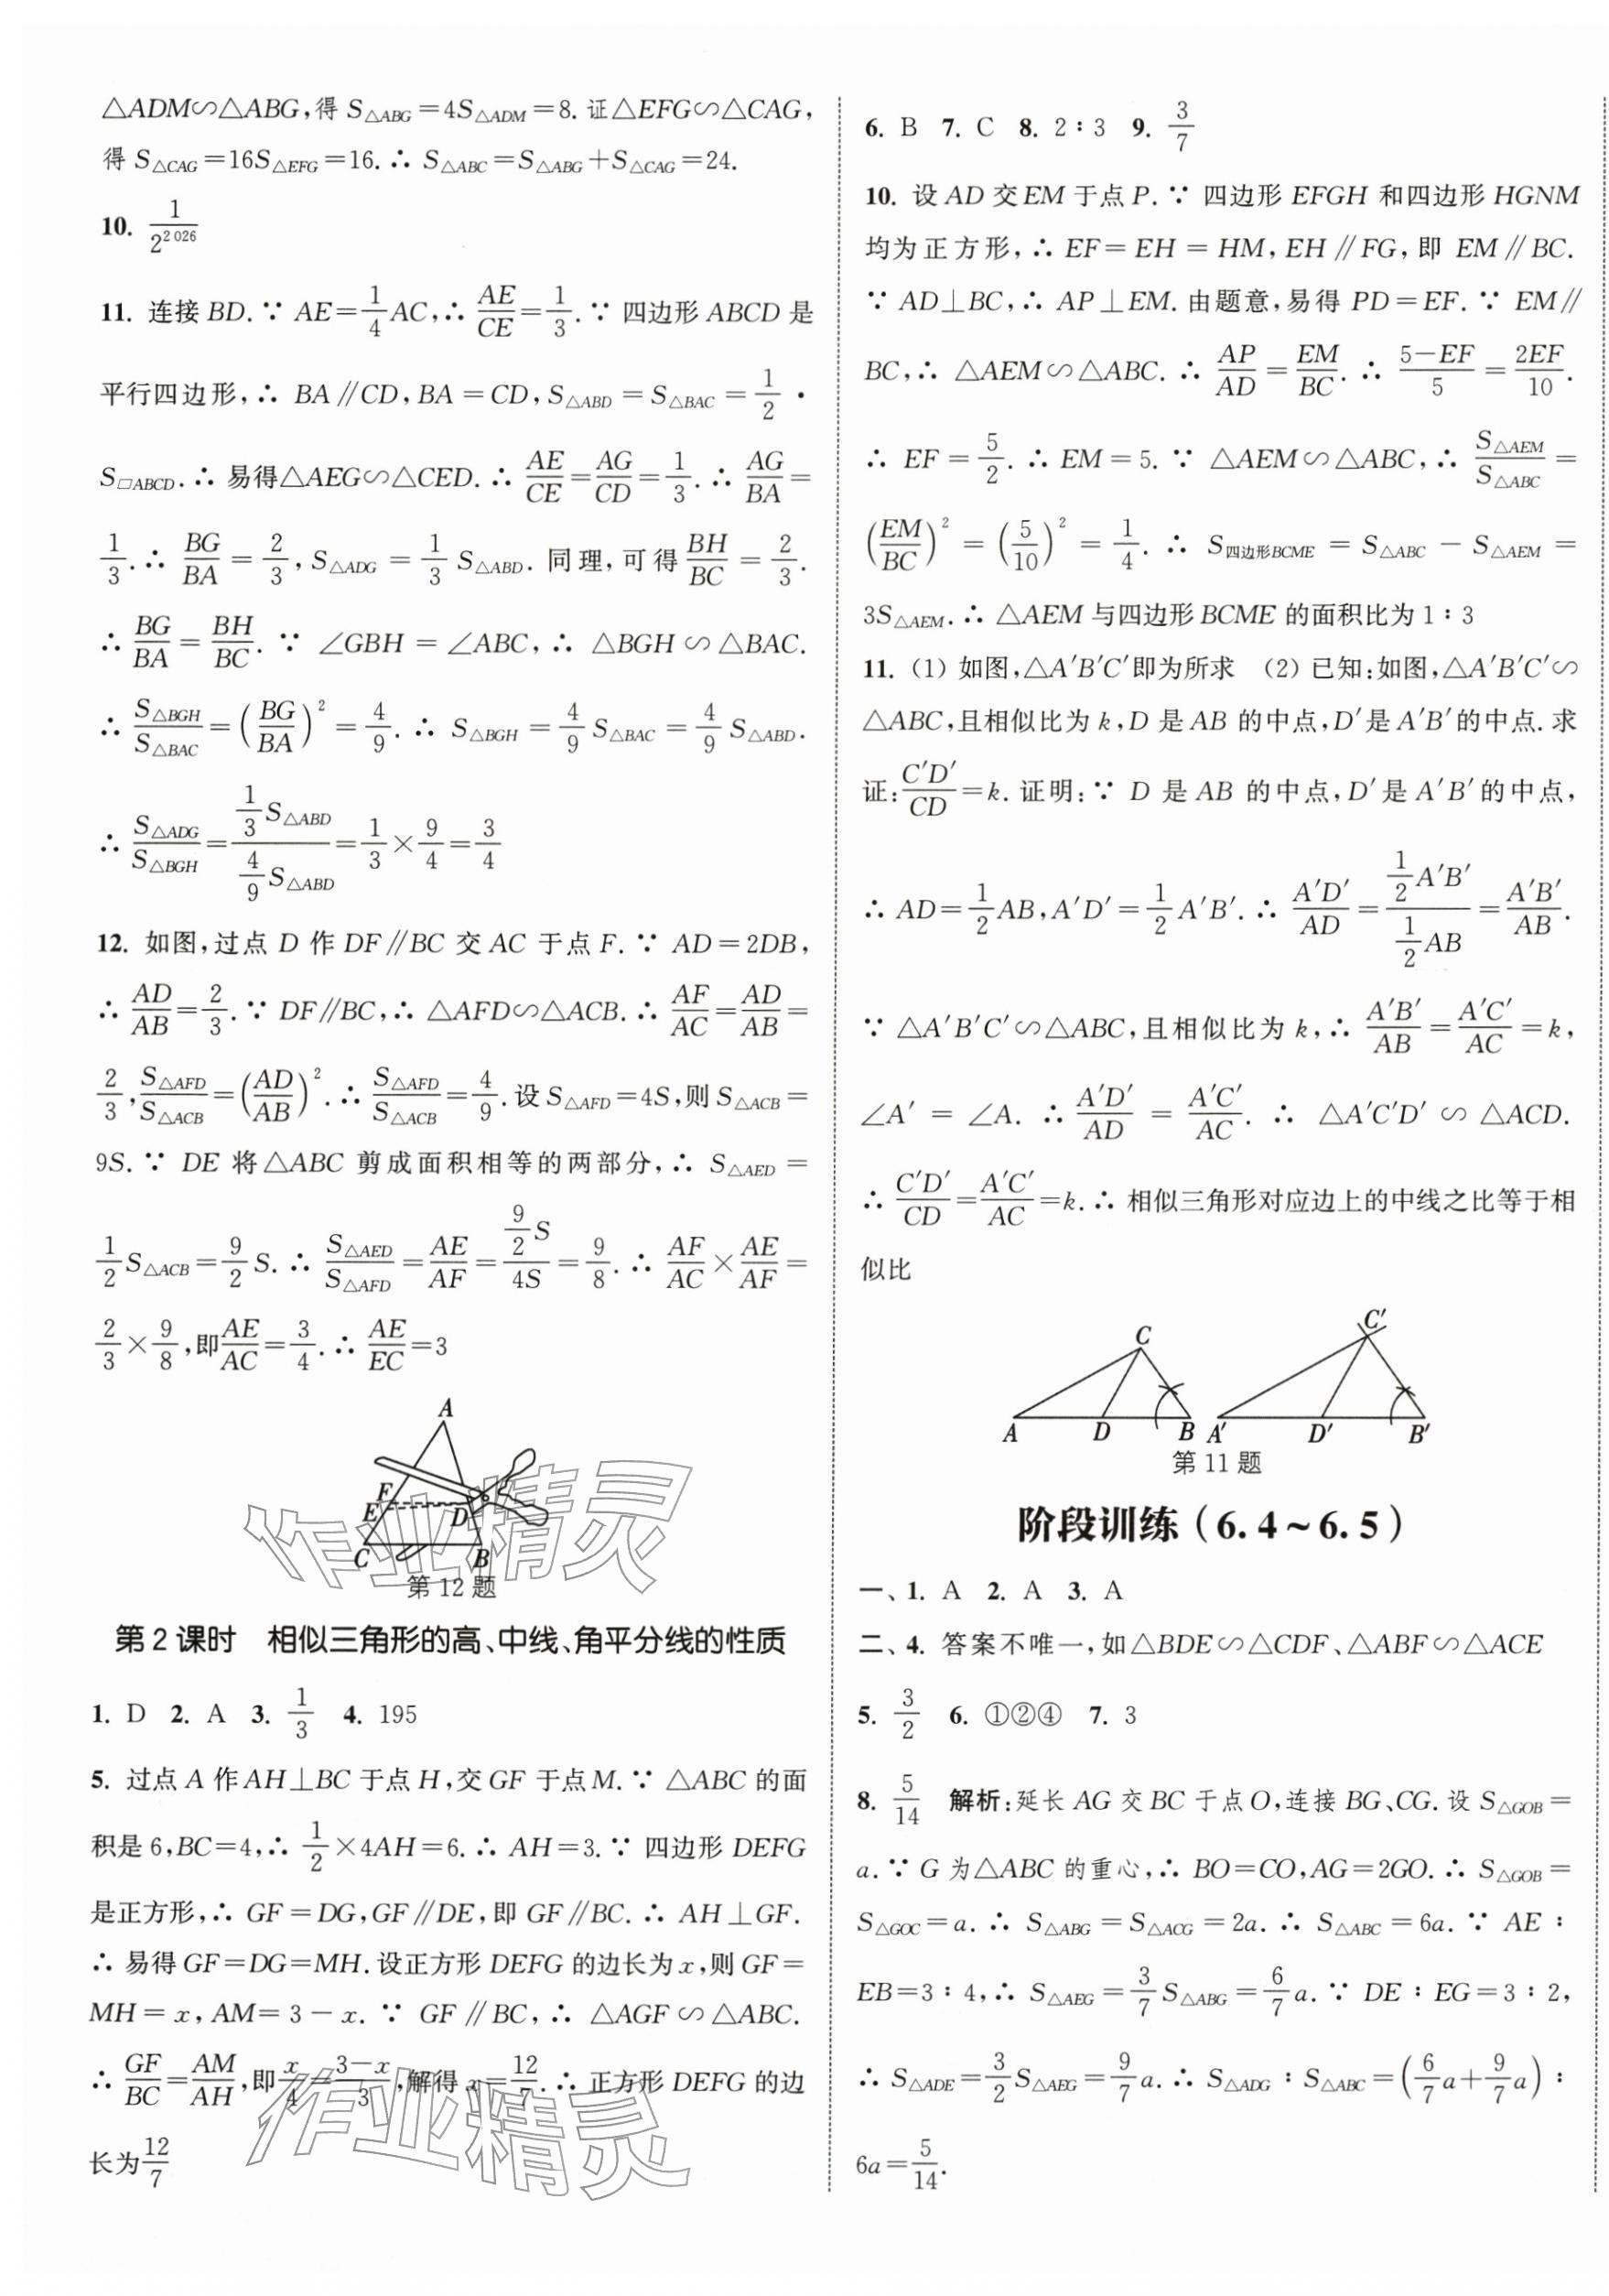 △ADM∽△ABG,得 S△ABG=4S△ADM=8. 证△EFG∽△CAG,
得 S△CAG=16S△EFG=16. ∴ S△ABC=S△ABG+S△CAG=24.
10. 1/2^2 026
11. 连接 BD. ∵ AE=1/4 AC,∴ AE/CE=1/3. ∵ 四边形 ABCD 是
平行四边形,∴ BA∥CD,BA=CD,S△ABD=S△BAC=1/2 ·
S▱ABCD. ∴ 易得△AEG∽△CED. ∴ AE/CE=AG/CD=1/3. ∴ AG/BA=
1/3. ∴ BG/BA=2/3,S△ADG=1/3 S△ABD. 同理,可得 BH/BC=2/3.
∴ BG/BA=BH/BC. ∵ ∠GBH=∠ABC,∴ △BGH∽△BAC.
∴ S△BGH/S△BAC=(BG/BA)²=4/9. ∴ S△BGH=4/9 S△BAC=4/9 S△ABD.
∴ S△ADG/S△BGH=(1/3 S△ABD)/(4/9 S△ABD)=1/3×9/4=3/4
12. 如图,过点 D 作 DF∥BC 交 AC 于点 F. ∵ AD=2DB,
∴ AD/AB=2/3. ∵ DF∥BC,∴ △AFD∽△ACB. ∴ AF/AC=AD/AB=
2/3,S△AFD/S△ACB=(AD/AB)². ∴ S△AFD/S△ACB=4/9. 设 S△AFD=4S,则 S△ACB=
9S. ∵ DE 将△ABC 剪成面积相等的两部分,∴ S△AED=
1/2 S△ACB=9/2 S. ∴ S△AED/S△AFD=AE/AF=(9/2 S)/4S=9/8. ∴ AF/AC×AE/AF=
2/3×9/8,即 AE/AC=3/4. ∴ AE/EC=3
A
F
E
D
C
B
第 12 题
第 2 课时 相似三角形的高、中线、角平分线的性质
1. D 2. A 3. 1/3 4. 195
5. 过点 A 作 AH⊥BC 于点 H,交 GF 于点 M. ∵ △ABC 的面
积是 6,BC=4,∴ 1/2×4AH=6. ∴ AH=3. ∵ 四边形 DEFG
是正方形,∴ GF=DG,GF∥DE,即 GF∥BC. ∴ AH⊥GF.
∴ 易得 GF=DG=MH. 设正方形 DEFG 的边长为 x,则 GF=
MH=x,AM=3-x. ∵ GF∥BC,∴ △AGF∽△ABC.
∴ GF/BC=AM/AH,即 x/4=(3-x)/3,解得 x=12/7. ∴ 正方形 DEFG 的边
长为 12/7
作业精灵
作业精灵
6. B 7. C 8. 2∶3 9. 3/7
10. 设 AD 交 EM 于点 P. ∵ 四边形 EFGH 和四边形 HGNM
均为正方形,∴ EF=EH=HM,EH∥FG,即 EM∥BC.
∵ AD⊥BC,∴ AP⊥EM. 由题意,易得 PD=EF. ∵ EM∥
BC,∴ △AEM∽△ABC. ∴ AP/AD=EM/BC. ∴ (5-EF)/5=2EF/10.
∴ EF=5/2. ∴ EM=5. ∵ △AEM∽△ABC,∴ S△AEM/S△ABC=
(EM/BC)²=(5/10)²=1/4. ∴ S四边形BCME=S△ABC-S△AEM=
3S△AEM. ∴ △AEM 与四边形 BCME 的面积比为 1∶3
11. (1) 如图,△A′B′C′即为所求 (2) 已知:如图,△A′B′C′∽
△ABC,且相似比为 k,D 是 AB 的中点,D′是 A′B′的中点. 求
证:C′D′/CD=k. 证明:∵ D 是 AB 的中点,D′是 A′B′的中点,
∴ AD=1/2 AB,A′D′=1/2 A′B′. ∴ A′D′/AD=(1/2 A′B′)/(1/2 AB)=A′B′/AB.
∵ △A′B′C′∽△ABC,且相似比为 k,∴ A′B′/AB=A′C′/AC=k,
∠A′=∠A. ∴ A′D′/AD=A′C′/AC. ∴ △A′C′D′∽△ACD.
∴ C′D′/CD=A′C′/AC=k. ∴ 相似三角形对应边上的中线之比等于相
似比
C C′
A D B A′ D′ B′
第 11 题
阶段训练(6.4~6.5)
一、1. A 2. A 3. A
二、4. 答案不唯一,如△BDE∽△CDF、△ABF∽△ACE
5. 3/2 6. ①②④ 7. 3
8. 5/14 解析:延长 AG 交 BC 于点 O,连接 BG、CG. 设 S△GOB=
a. ∵ G 为△ABC 的重心,∴ BO=CO,AG=2GO. ∴ S△GOB=
S△GOC=a. ∴ S△ABG=S△ACG=2a. ∴ S△ABC=6a. ∵ AE∶
EB=3∶4,∴ S△AEG=3/7 S△ABG=6/7 a. ∵ DE∶EG=3∶2,
∴ S△ADE=3/2 S△AEG=9/7 a. ∴ S△ADG∶S△ABC=(6/7 a+9/7 a)∶
6a=5/14.